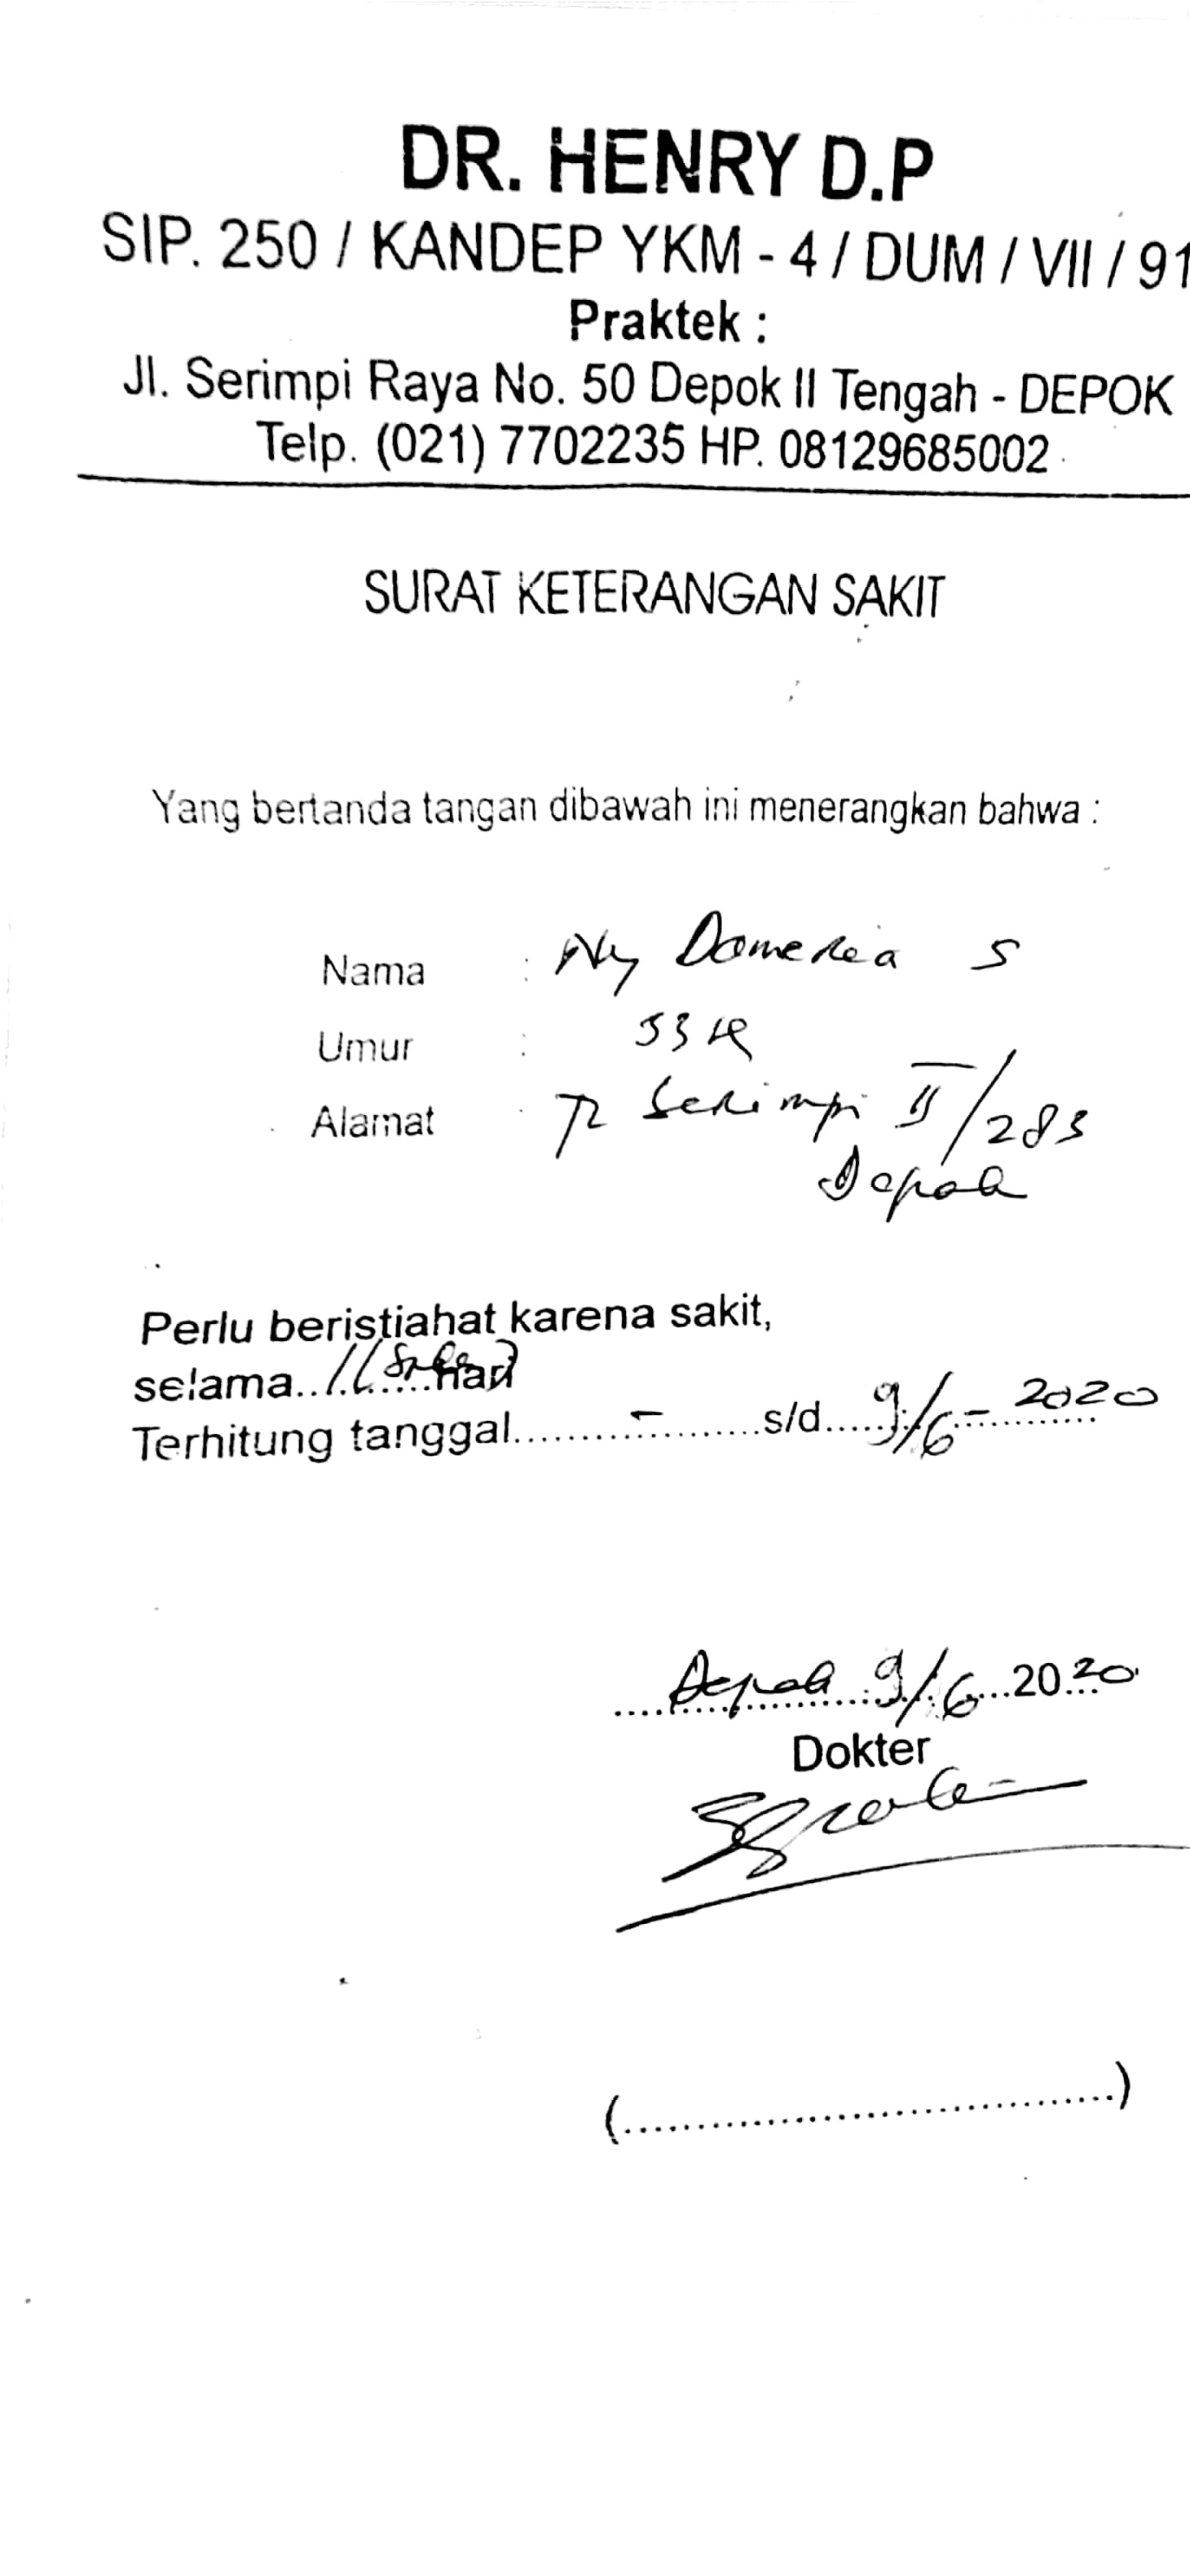 DR. HENRY D.P
SIP. 250 / KANDEP YKM - 4 / DUM / VII / 91
Praktek :
Jl. Serimpi Raya No. 50 Depok II Tengah - DEPOK
Telp. (021) 7702235 HP. 08129685002
SURAT KETERANGAN SAKIT
Yang bertanda tangan dibawah ini menerangkan bahwa :
Nama : Ny Domeria S
Umur : 53
Alamat : Jl Serimpi II/283
Depok
Perlu beristiahat karena sakit,
selama Hari
Terhitung tanggal.......-.......s/d.....9/6-2020
Depok 9/6 2020
Dokter
(................................)